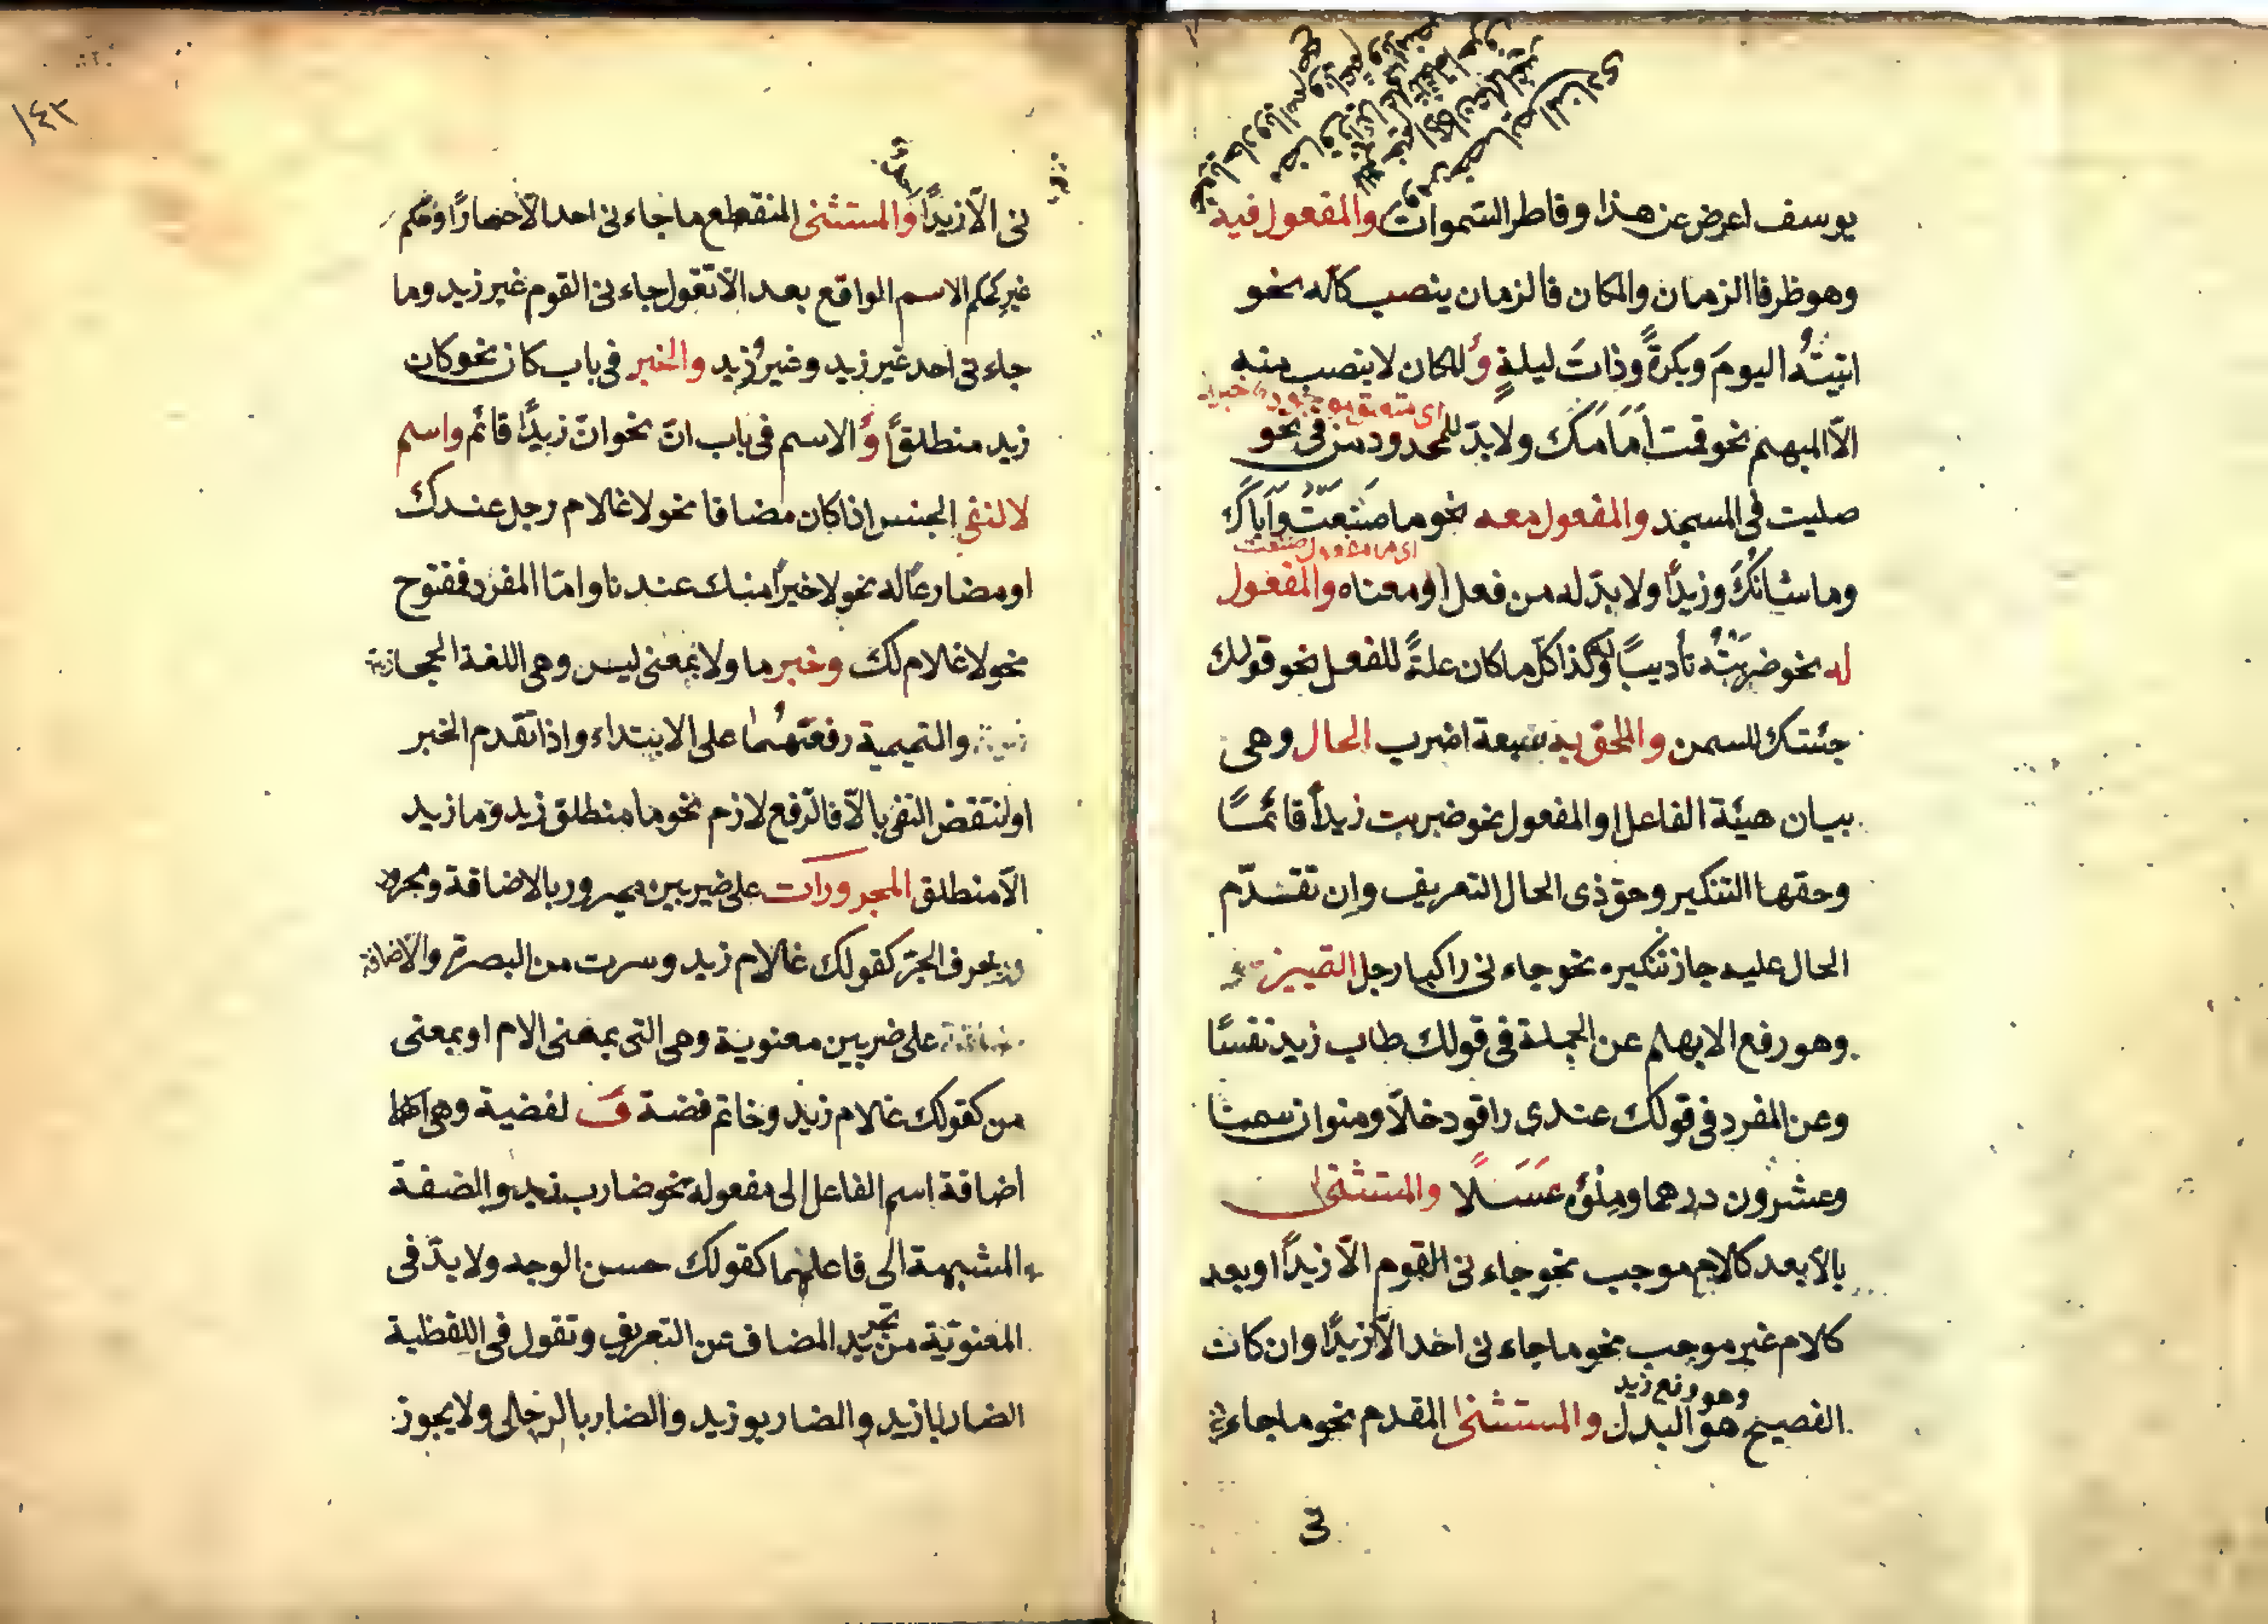 يوسف اعرض عن هذا وفاطر السموات والمفعول فيه
وهو ظرفا الزمان والمكان فالزمان ينصب كله نحو
اتيته اليومَ وبكرةً وذاتَ ليلةٍ وُالمكان لا ينصب منه
الّا المبهم نحو قمت أمَامَكَ ولا بدّ للمحدود من فى نحو
صليت فى المسجد والمفعول معه نحو ما صنعتَ وَاَباكَ
اى ما مفعول صنعت
وما شانكَ وزيدًا ولا بدّ له من فعل او معناه والمفعول
له نحو ضربتُه تأديبًا وكذا كل ما كان علةً للفعل نحو قولك
جئتك للسمن والملحق به سبعة اضرب الحال وهى
بيان هيئة الفاعل او المفعول نحو ضربت زيداً قائمًا
وحقها التنكير وحق ذى الحال التعريف وان تقدّم
الحال عليه جاز تنكيره نحو جاءنى راكبا رجل التمييز
وهو رفع الابهام عن الجملة فى قولك طاب زيد نفسًا
وعن المفرد فى قولك عندى راقود خلّا ومنوان سمنا
وعشرون درهما وملؤه عَسَلًا والمستثنى
بالّا بعد كلام موجب نحو جاءنى القوم الّا زيدًا او بعد
كلام غير موجب نحو ما جاءنى احد الّا زيدًا وان كان
وهو رفع زيد
الفصيح هو البدل والمستثنى المقدم نحو ما جاء
3
١٤٣
نى الّا زيدًا والمستثنى المنقطع ما جاءنى احد الّا حمارًا وحكم
غير كحكم الاسم الواقع بعد الّا تقول جاءنى القوم غير زيد وما
جاءنى احد غير زيد وغيرُ زيد والخبر فى باب كان نحو كان
زيد منطلقًا وُ الاسم فى باب انّ نحو انّ زيدًا قائم واسم
لا لنفى الجنس اذا كان مضافا نحو لا غلام رجل عندك
او مضارعًا له نحو لا خيرًا منك عندنا وامّا المفرد فمفتوح
نحو لا غلام لك وخبر ما ولا بمعنى ليس وهى اللغة الحجازية
والتميمية رفعتهما على الابتداء واذا تقدم الخبر
او انتقض النفى بالّا فالرّفع لازم نحو ما منطلق زيد وما زيد
الّا منطلق المجرورات على ضربين مجرور بالاضافة ومجرور
بحرف الجرّ كقولك غلام زيد وسرت من البصرة والاضافة
على ضربين معنوية وهى التى بمعنى الام او بمعنى
من كقولك غلام زيد وخاتم فضة وَ لفضية وهى
اضافة اسم الفاعل الى مفعوله نحو ضارب زيد والصفة
المشبهة الى فاعلها كقولك حسن الوجه ولا بدّ فى
المعنويّة من تجريد المضاف عن التعريف وتقول فى اللفظية
الضاربا زيد والضاربو زيد والضارب الرجل ولا يجوز